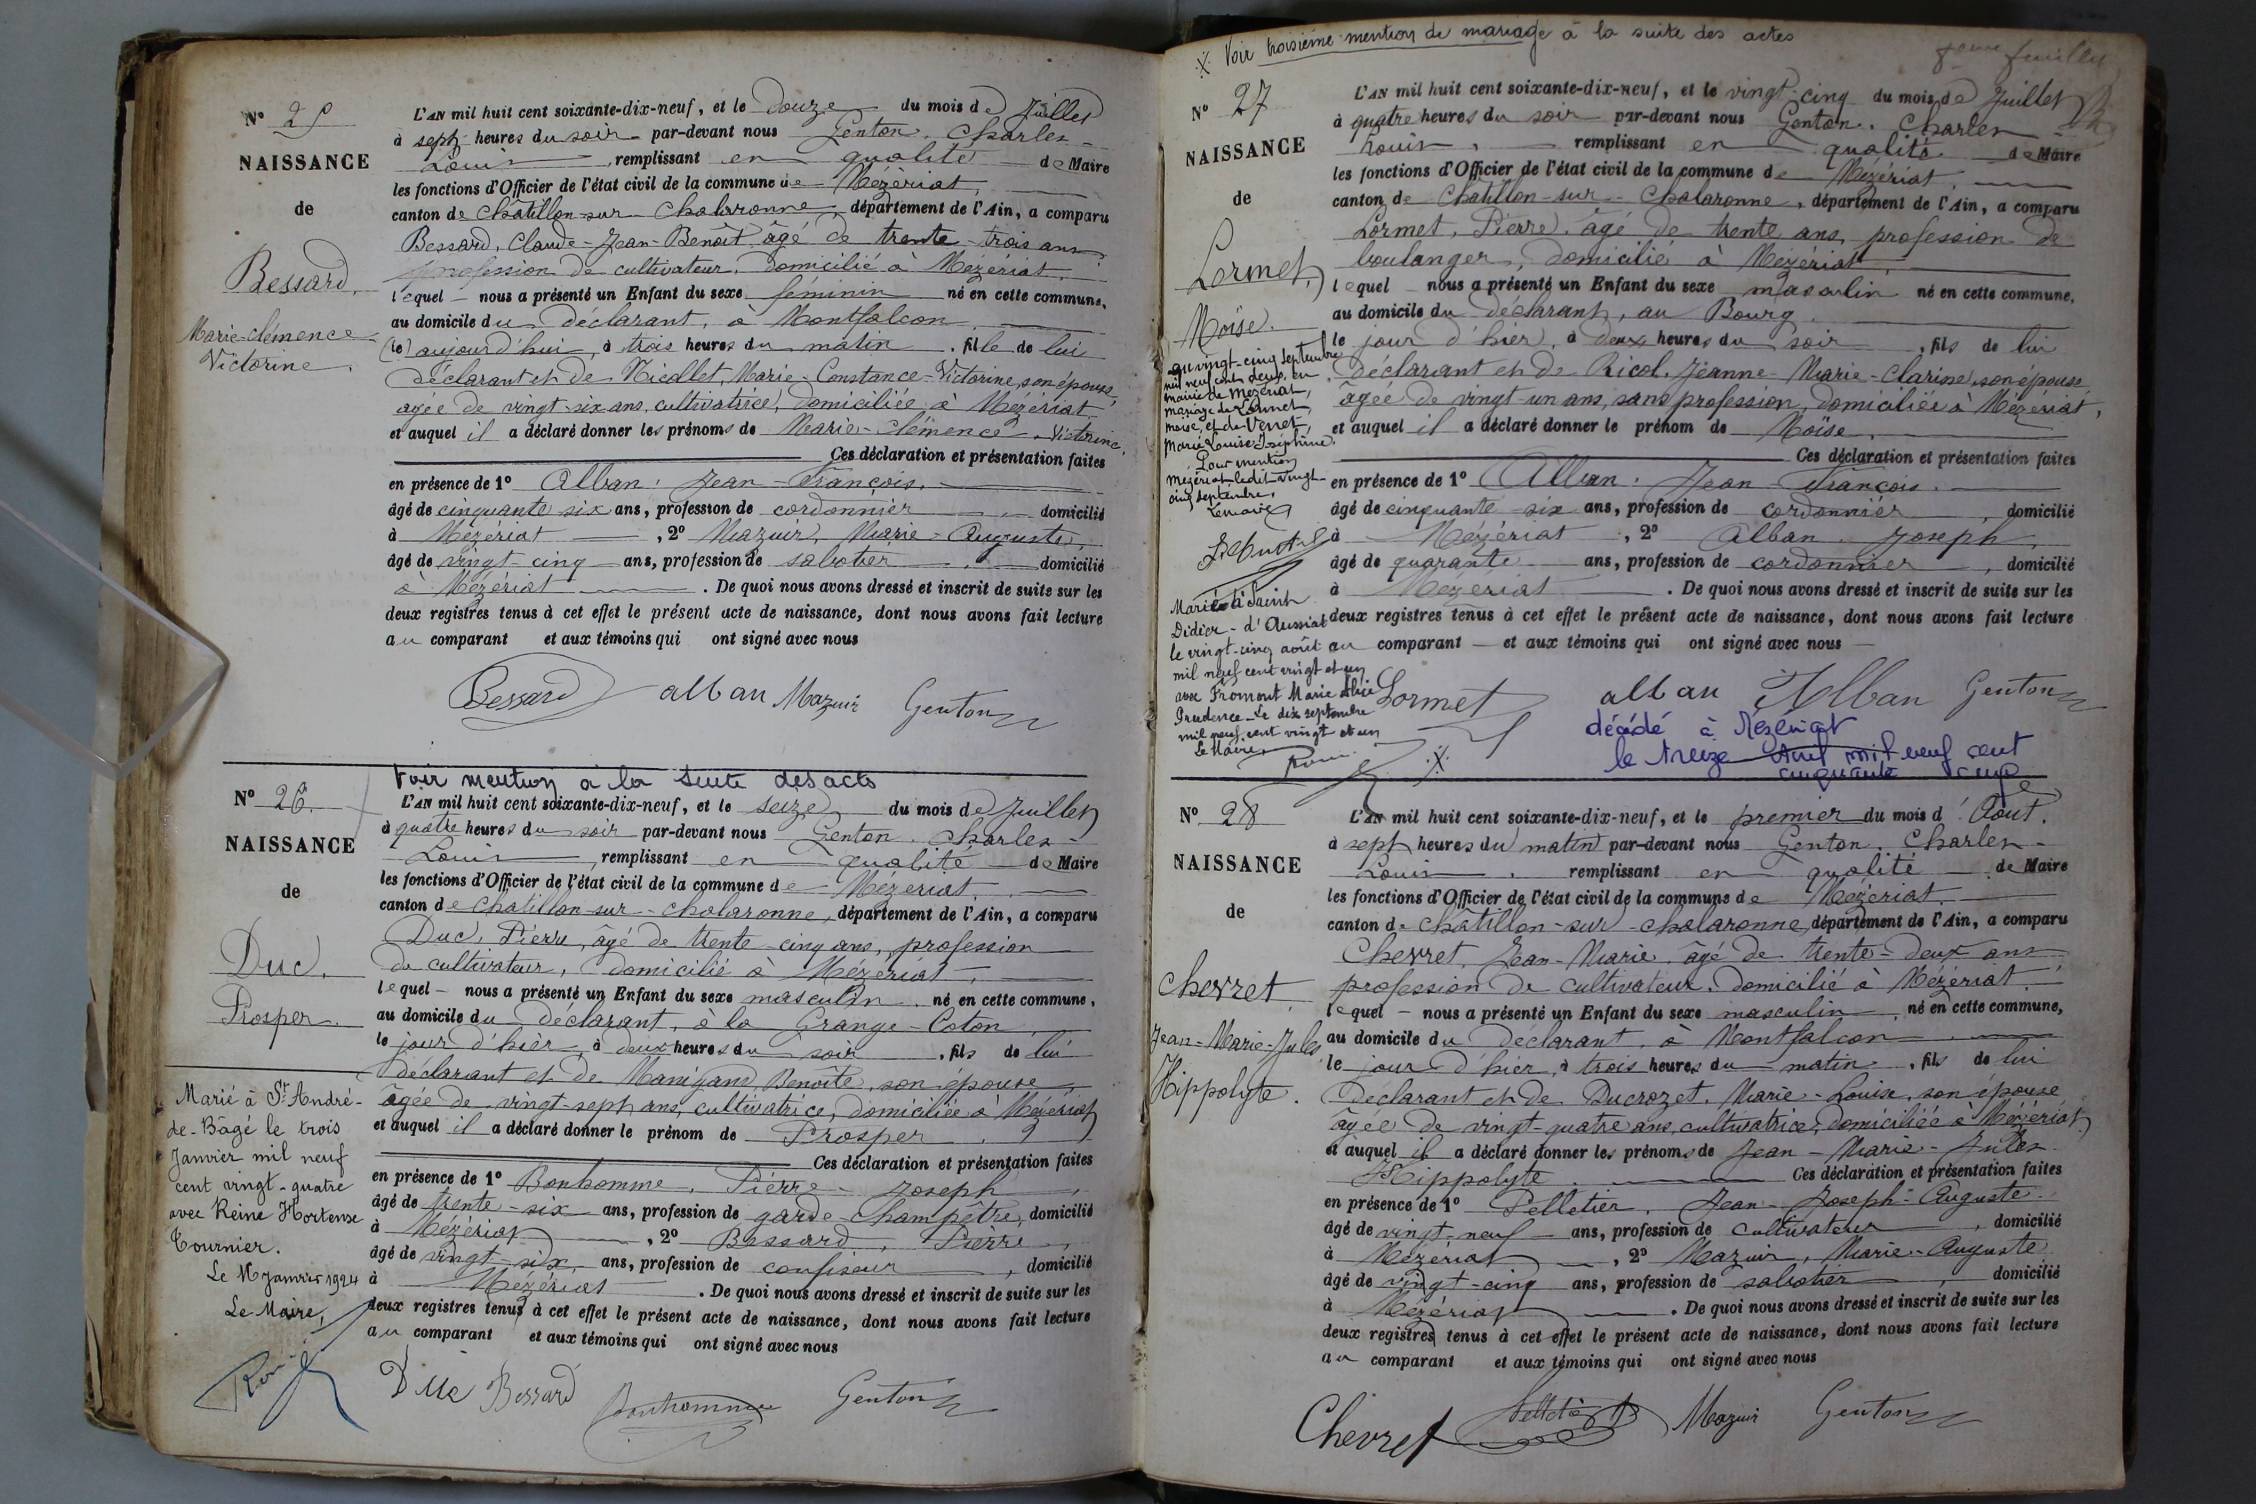 N° 25
NAISSANCE
de
Bessard,
Marie-Clémence-
Victorine.
L'AN mil huit cent soixante-dix-neuf, et le douze du mois de Juillet
à sept heures du soir par-devant nous Genton, Charles-
Louis remplissant en qualité de Maire
les fonctions d'Officier de l'état civil de la commune de Mézériat,
canton de Châtillon-sur-Chalaronne, département de l'Ain, a comparu
Bessard, Claude-Jean-Benoît, âgé de trente-trois ans
profession de cultivateur, domicilié à Mézériat,
lequel nous a présenté un Enfant du sexe féminin né en cette commune,
au domicile du déclarant, à Montfalcon
(le) aujourd'hui, à trois heures du matin, fille de lui
déclarant et de Nicollet, Marie-Constance-Victorine, son épouse,
âgée de vingt-six ans, cultivatrice, domiciliée à Mézériat
et auquel il a déclaré donner les prénoms de Marie-Clémence-Victorine,
Ces déclaration et présentation faites
en présence de 1° Alban, Jean-François,
âgé de cinquante six ans, profession de cordonnier domicilié
à Mézériat, 2° Mazuir, Marie-Auguste,
âgé de vingt-cinq ans, profession de sabotier, domicilié
à Mézériat. De quoi nous avons dressé et inscrit de suite sur les
deux registres tenus à cet effet le présent acte de naissance, dont nous avons fait lecture
au comparant et aux témoins qui ont signé avec nous
Bessard alban Mazuir Genton
Voir mention à la suite des actes
N° 26
NAISSANCE
de
Duc,
Prosper.
Marié à St André-
de-Bâgé le trois
Janvier mil neuf
cent vingt-quatre
avec Reine Hortense
Tournier.
Le Janvier 1924
Le Maire,
L'AN mil huit cent soixante-dix-neuf, et le seize du mois de Juillet
à quatre heures du soir par-devant nous Genton, Charles-
Louis, remplissant en qualité de Maire
les fonctions d'Officier de l'état civil de la commune de Mézériat,
canton de Châtillon-sur-Chalaronne, département de l'Ain, a comparu
Duc, Pierre, âgé de trente-cinq ans, profession
de cultivateur, domicilié à Mézériat,
lequel nous a présenté un Enfant du sexe masculin né en cette commune,
au domicile du déclarant, à la Grange-Coton,
le jour d'hier, à deux heures du soir, fils de lui
déclarant et de Manigand, Benoîte, son épouse,
âgée de vingt-sept ans, cultivatrice, domiciliée à Mézériat
et auquel il a déclaré donner le prénom de Prosper.
Ces déclaration et présentation faites
en présence de 1° Bonhomme, Pierre-Joseph,
âgé de trente-six ans, profession de garde-champêtre, domicilié
à Mézériat, 2° Bessard, Pierre,
âgé de vingt-six ans, profession de confiseur, domicilié
à Mézériat. De quoi nous avons dressé et inscrit de suite sur les
deux registres tenus à cet effet le présent acte de naissance, dont nous avons fait lecture
au comparant et aux témoins qui ont signé avec nous
Duc Bessard Bonhomme Genton
Voir troisième mention de mariage à la suite des actes
feuillet
N° 27
NAISSANCE
de
Lormet,
Moïse.
au vingt-cinq septembre
mil neuf cent deux, en
mairie de Mézériat,
mariage de Lormet,
moïse, et de Verret,
Marie Louise Joséphine.
Pour mention
Mézériat ledit vingt-
cinq septembre,
Le maire
Marié à Saint
Didier-d'Aussiat
le vingt-cinq août
mil neuf cent vingt et un
avec Fromont Marie Alice
Prudence. Le dix septembre
mil neuf cent vingt et un
Le Maire,
L'AN mil huit cent soixante-dix-neuf, et le vingt-cinq du mois de Juillet
à quatre heures du soir par-devant nous Genton, Charles-
Louis, remplissant en qualité de Maire
les fonctions d'Officier de l'état civil de la commune de Mézériat,
canton de Châtillon-sur-Chalaronne, département de l'Ain, a comparu
Lormet, Pierre, âgé de trente ans, profession de
boulanger, domicilié à Mézériat,
lequel nous a présenté un Enfant du sexe masculin né en cette commune,
au domicile du déclarant, au Bourg.
le jour d'hier, à deux heures du soir, fils de lui
déclarant et de Ricol, Jeanne-Marie-Clarisse, son épouse,
âgée de vingt-un ans, sans profession, domiciliée à Mézériat,
et auquel il a déclaré donner le prénom de Moïse.
Ces déclaration et présentation faites
en présence de 1° Alban, Jean-François.
âgé de cinquante six ans, profession de cordonnier, domicilié
à Mézériat, 2° Alban, Joseph,
âgé de quarante ans, profession de cordonnier, domicilié
à Mézériat. De quoi nous avons dressé et inscrit de suite sur les
deux registres tenus à cet effet le présent acte de naissance, dont nous avons fait lecture
au comparant et aux témoins qui ont signé avec nous
Lormet alban Alban Genton
décédé à Mézériat
le treize Avril mil neuf cent
cinquante cinq
N° 28
NAISSANCE
de
Chevret
Jean-Marie-Jules
Hippolyte.
L'AN mil huit cent soixante-dix-neuf, et le premier du mois d'Août.
à sept heures du matin par-devant nous Genton, Charles-
Louis, remplissant en qualité de Maire
les fonctions d'Officier de l'état civil de la commune de Mézériat,
canton de Châtillon-sur-Chalaronne, département de l'Ain, a comparu
Chevret, Jean-Marie, âgé de trente-deux ans
profession de cultivateur, domicilié à Mézériat,
lequel nous a présenté un Enfant du sexe masculin né en cette commune,
au domicile du déclarant, à Montfalcon
le jour d'hier, à trois heures du matin, fils de lui
déclarant et de Ducrozet, Marie-Louise, son épouse
âgée de vingt-quatre ans, cultivatrice, domiciliée à Mézériat,
et auquel il a déclaré donner les prénoms de Jean-Marie-Jules
Hippolyte. Ces déclaration et présentation faites
en présence de 1° Pelletier, Jean-Joseph-Auguste
âgé de vingt-neuf ans, profession de cultivateur, domicilié
à Mézériat, 2° Mazuir, Marie-Auguste
âgé de vingt-cinq ans, profession de sabotier, domicilié
à Mézériat. De quoi nous avons dressé et inscrit de suite sur les
deux registres tenus à cet effet le présent acte de naissance, dont nous avons fait lecture
au comparant et aux témoins qui ont signé avec nous
Chevret Pelletier Mazuir Genton